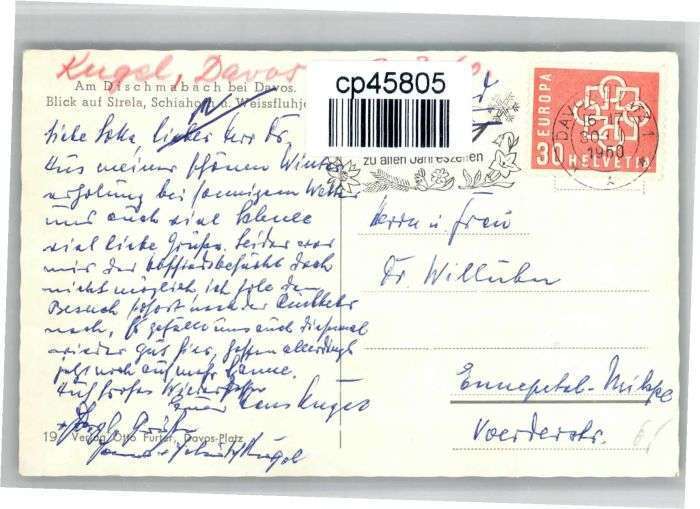 Kugel, Davos
Am Dischmabach bei Davos.
Blick auf Strela, Schiahorn u. Weissfluhjo
cp45805
zu allen Jahreszeiten
DAVOS
1960
EUROPA
30 HELVETIA
Liebe Lotte, lieber Herr Dr.
Aus meiner schönen Winter
erholung bei sonnigem Wetter
und auch viel Schnee
viel liebe Grüße. Leider war
mir der Abschiedsbesuch doch
nicht möglich, ich hole den
Besuch sofort nach der Rückkehr
nach. Es gefällt uns auch diesmal
wieder gut hier, hoffen allerdings
jetzt noch auf mehr Sonne.
Auf frohes Wiedersehen
Hans Kugel
Grüße
Kugel
19 Verlag Otto Furter, Davos-Platz
Herrn u. Frau
Dr. Willuhn
Ennepetal-Milspe
Voerderstr.